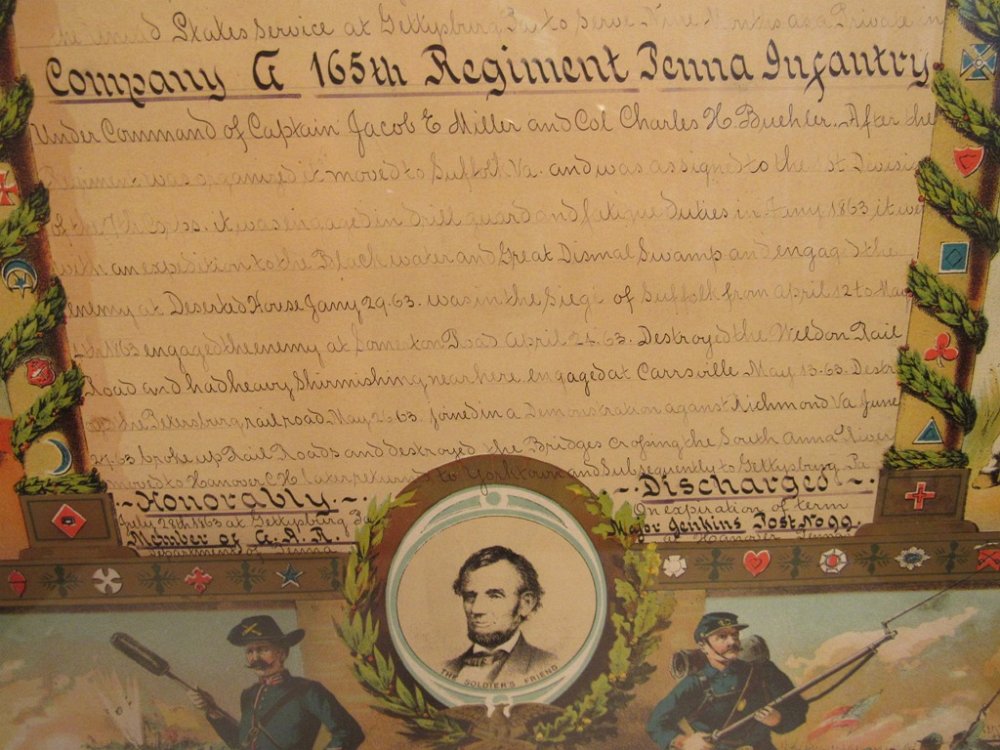 the United States Service at Gettysburg Pa to serve Nine Months as a Private in
Company G 165th Regiment Penna Infantry
Under Command of Captain Jacob E Miller and Col Charles H. Buehler. After the
Regiment was organized it moved to Suffolk Va. and was assigned to the 1st Division
of the 7th Corps. it was engaged in drill guard and fatigue duties in Jany 1863 it went
with an expedition to the Black water and Great Dismal Swamp and engaged the
enemy at Deserted House Jany 29-63. was in the Siege of Suffolk from April 12 to May
4th 1863 engaged the enemy at Somerton Road April 24-63. Destroyed the Weldon Rail
Road and had heavy Skirmishing near here. engaged at Carrsville May 13-63. Destr
the Petersburg rail road May 26 63. joined in a Demonstration against Richmond Va June
27-63 broke up Rail Roads and destroyed the Bridges crossing the South Anna River
moved to Hanover C.H. later returned to Yorktown and Subsequently to Gettysburg Pa
Honorably Discharged
July 28th 1863 at Gettysburg Pa On expiration of term
Member of G.A.R. Major Jenkins Post No 99
Department of Penna at Hanover Penna
THE SOLDIER'S FRIEND